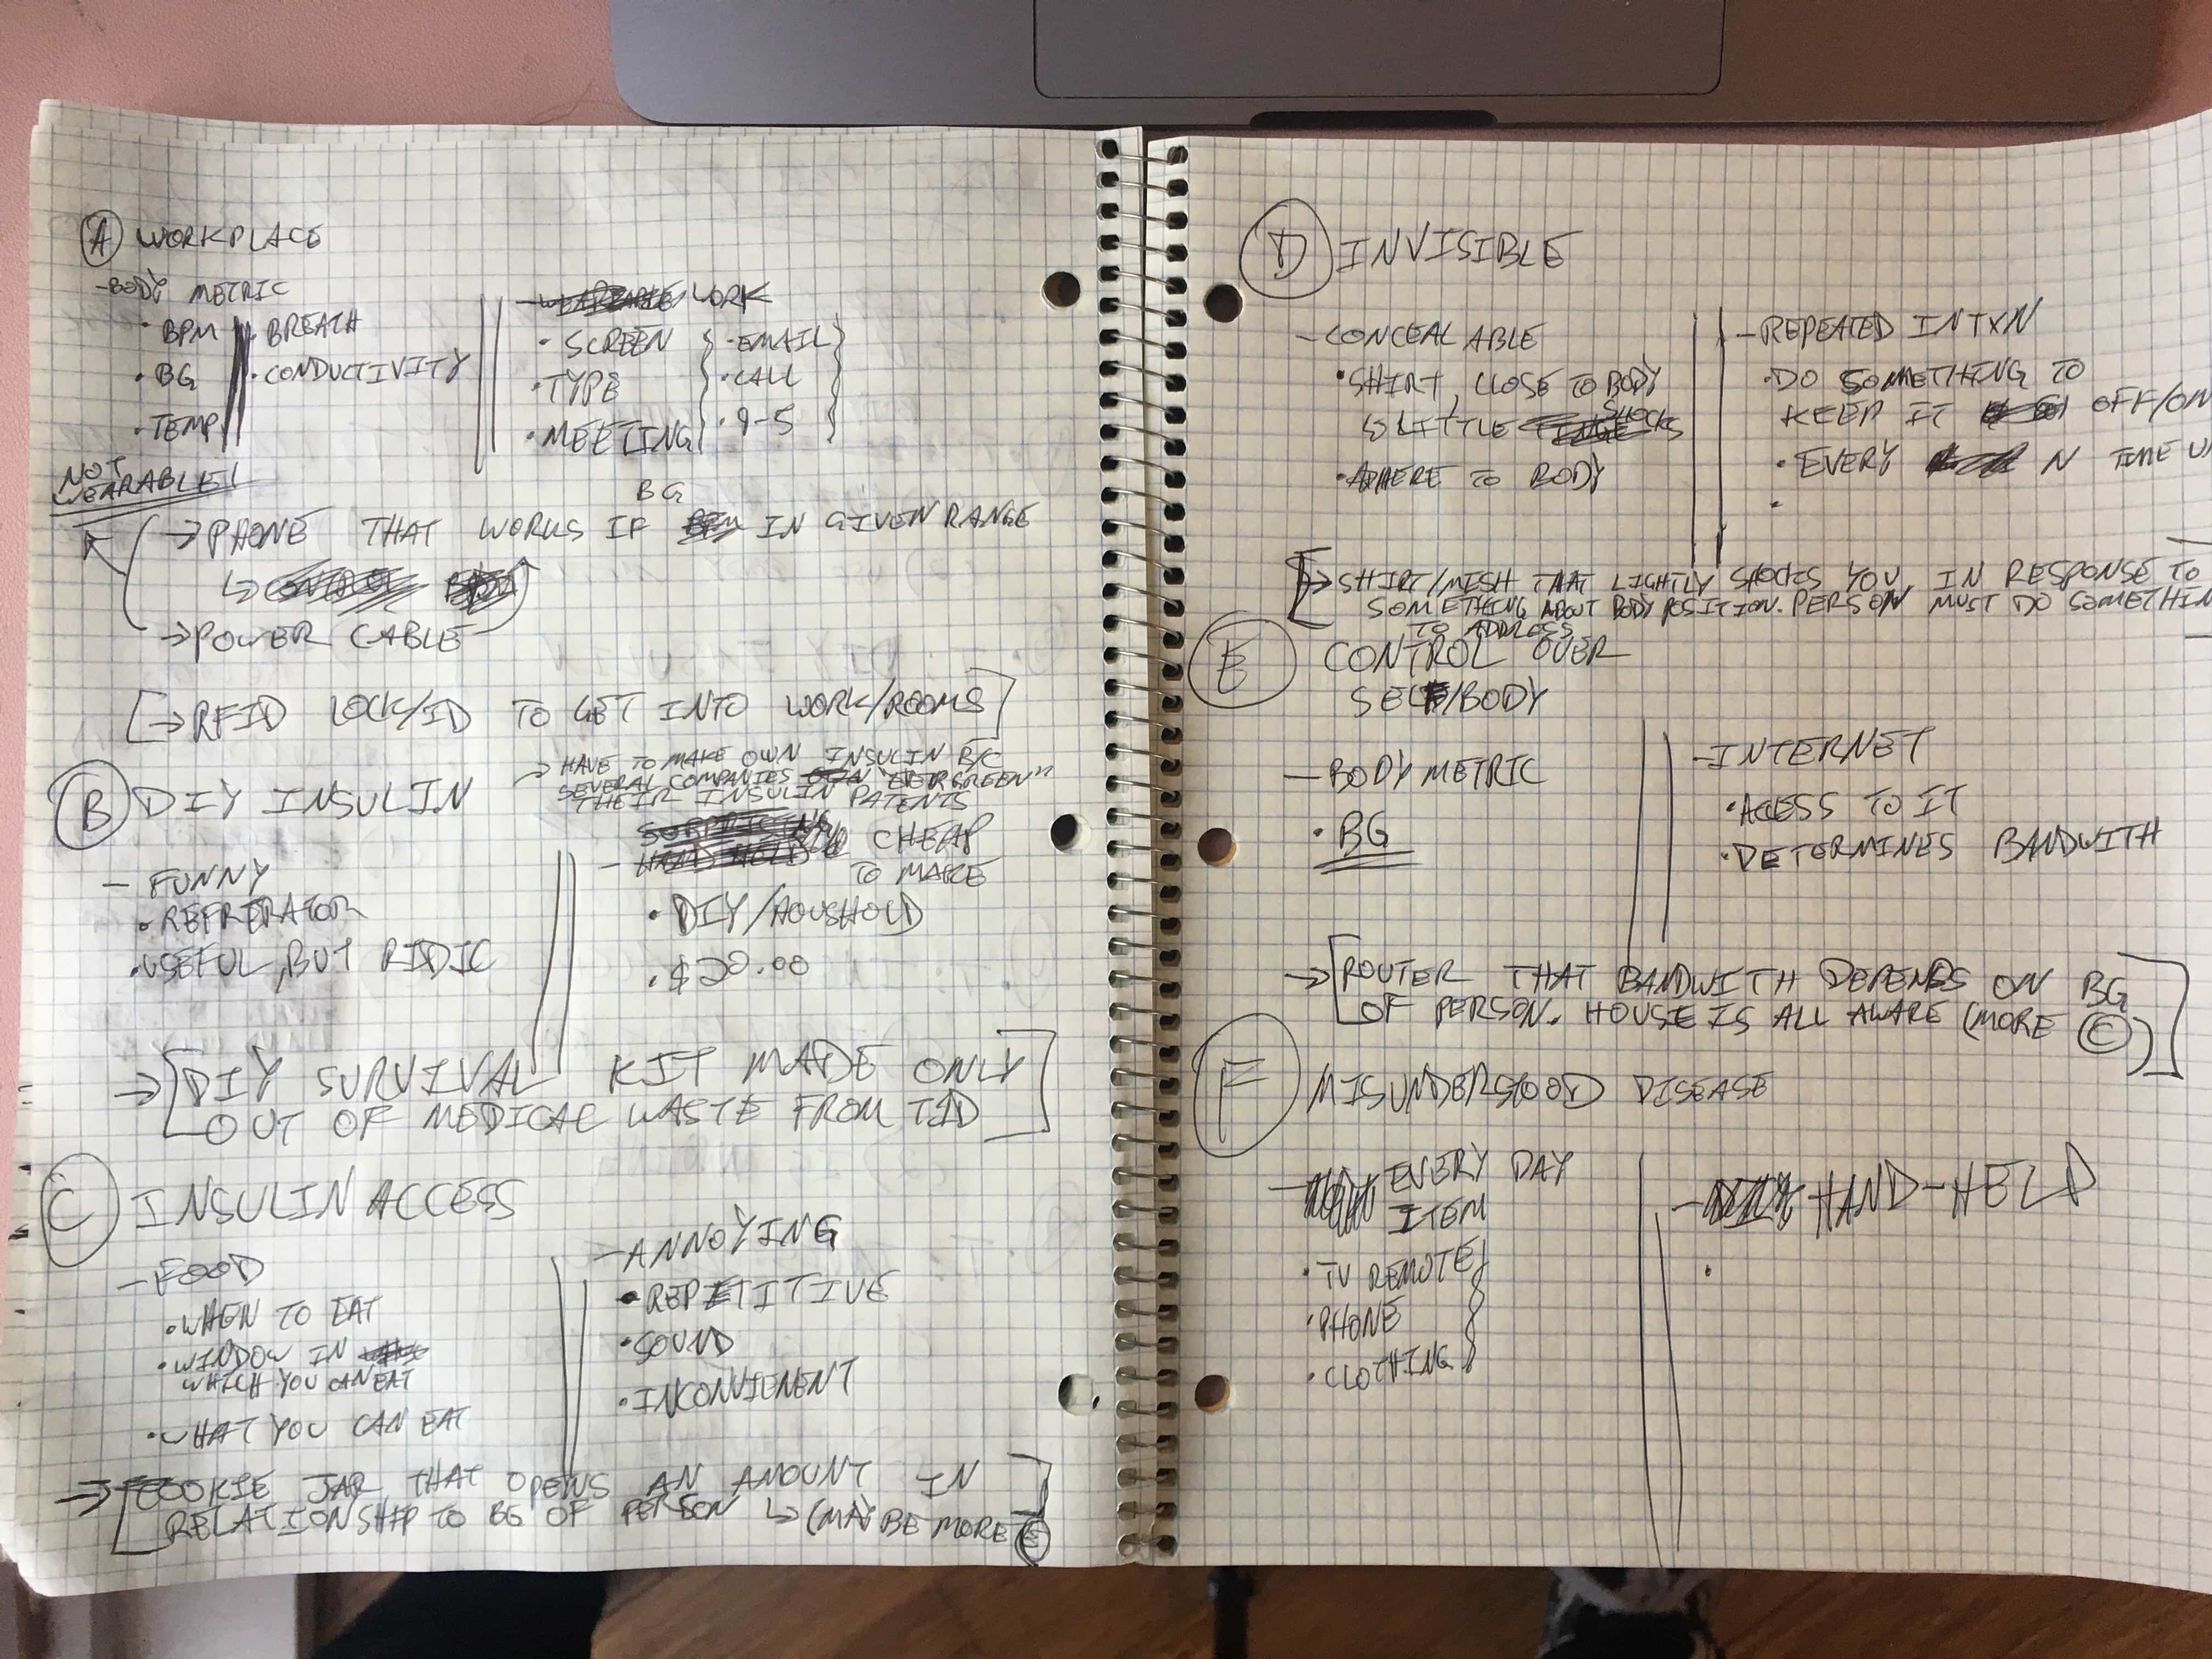 A WORKPLACE
-BODY METRIC
· BPM
· BG
· TEMP
· BREATH
· CONDUCTIVITY
- WORK
· SCREEN
· TYPE
· MEETING
· EMAIL
· CALL
· 9-5
NOT
WEARABLE!
BG
→ PHONE THAT WORKS IF IN GIVEN RANGE
→ POWER CABLE
[→ RFID LOCK/ID TO GET INTO WORK/ROOMS]
B DIY INSULIN
→ HAVE TO MAKE OWN INSULIN B/C
SEVERAL COMPANIES "EVERGREEN"
THEIR INSULIN PATENTS
- FUNNY
· REFRERATOR
· USEFUL, BUT RIDIC
- CHEAP
TO MAKE
· DIY/HOUSHOLD
· $20.00
→ [DIY SURVIVAL KIT MADE ONLY
OUT OF MEDICAL WASTE FROM T1D]
C INSULIN ACCESS
- FOOD
· WHEN TO EAT
· WINDOW IN
WHICH YOU CAN EAT
· WHAT YOU CAN EAT
- ANNOYING
· REPETITIVE
· SOUND
· INCONVIENENT
→ [COOKIE JAR THAT OPENS AN AMOUNT IN
RELATIONSHIP TO BG OF PERSON ↳ (MAY BE MORE E]
D INVISIBLE
- CONCEALABLE
· SHIRT, CLOSE TO BODY
↳ LITTLE SHOCKS
· ADHERE TO BODY
- REPEATED INTXN
· DO SOMETHING TO
KEEP IT OFF/ON
· EVERY N TIME
[→ SHIRT/MESH THAT LIGHTLY SHOCKS YOU, IN RESPONSE TO
SOMETHING ABOUT BODY POSITION. PERSON MUST DO SOMETHIN
TO ADDRESS
E CONTROL OVER
SELF/BODY
- BODY METRIC
· BG
- INTERNET
· ACCESS TO IT
· DETERMINES BANDWITH
→ [ROUTER THAT BANDWITH DEPENDS ON BG
OF PERSON. HOUSE IS ALL AWARE (MORE C)]
F MISUNDERSTOOD DISEASE
- EVERY DAY
ITEM
· TV REMOTE
· PHONE
· CLOTHING
- HAND-HELD